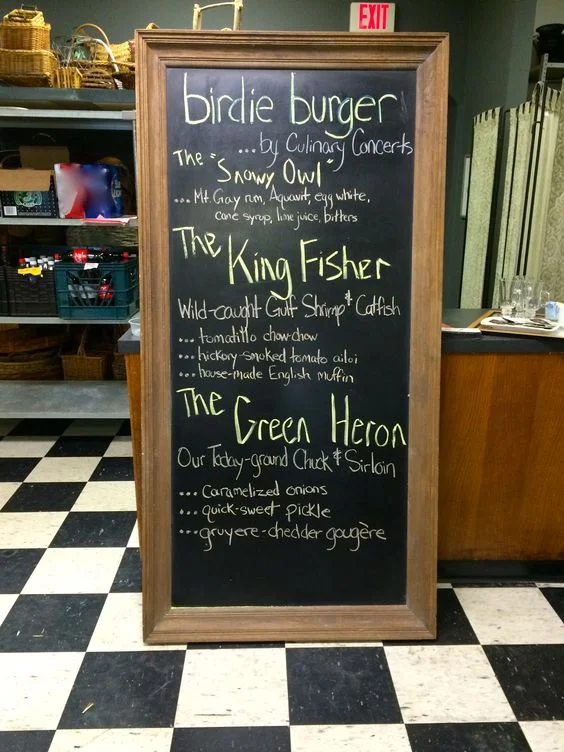 EXIT
birdie burger
...by Culinary Concerts
The "Snowy Owl"
... Mt. Gay rum, Aquavit, egg white,
cane syrup, lime juice, bitters
The King Fisher
Wild-caught Gulf Shrimp & Catfish
... tomatillo chow-chow
... hickory-smoked tomato ailoi
... house-made English muffin
The Green Heron
Our Today-ground Chuck & Sirloin
... Caramelized onions
... quick-sweet pickle
... gruyere-chedder gougère